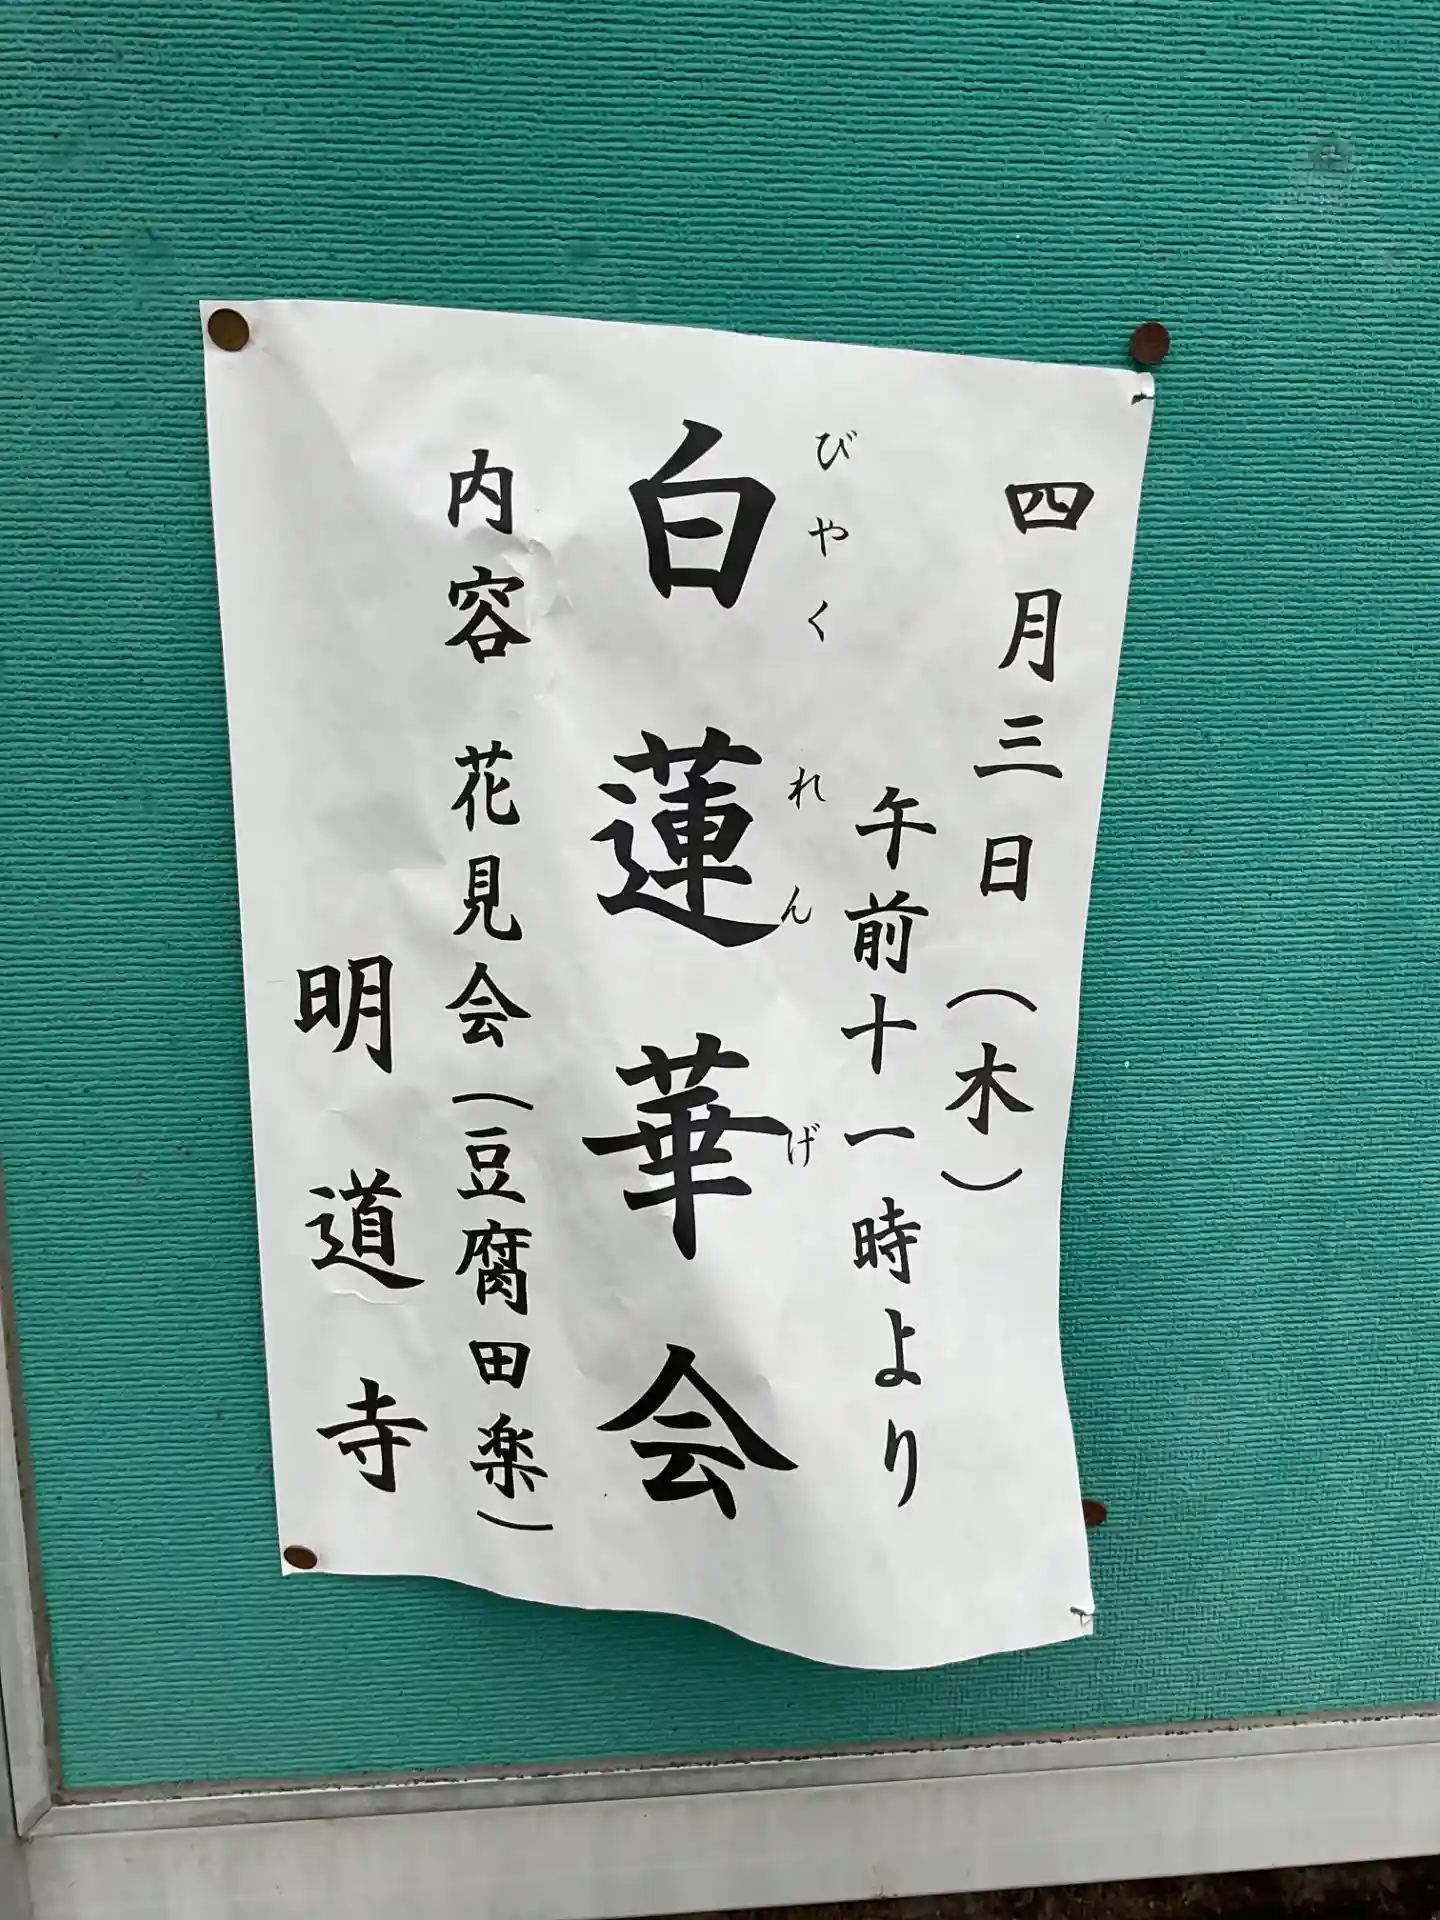 四月三日（木）
午前十一時より
びやくれんげ
白蓮華会
内容 花見会（豆腐田楽）
明道寺